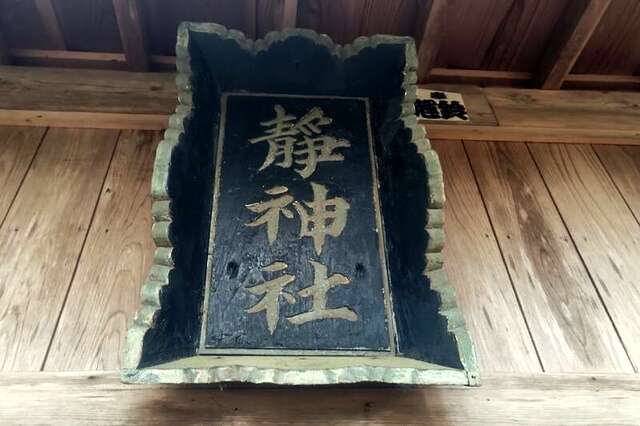 靜神社